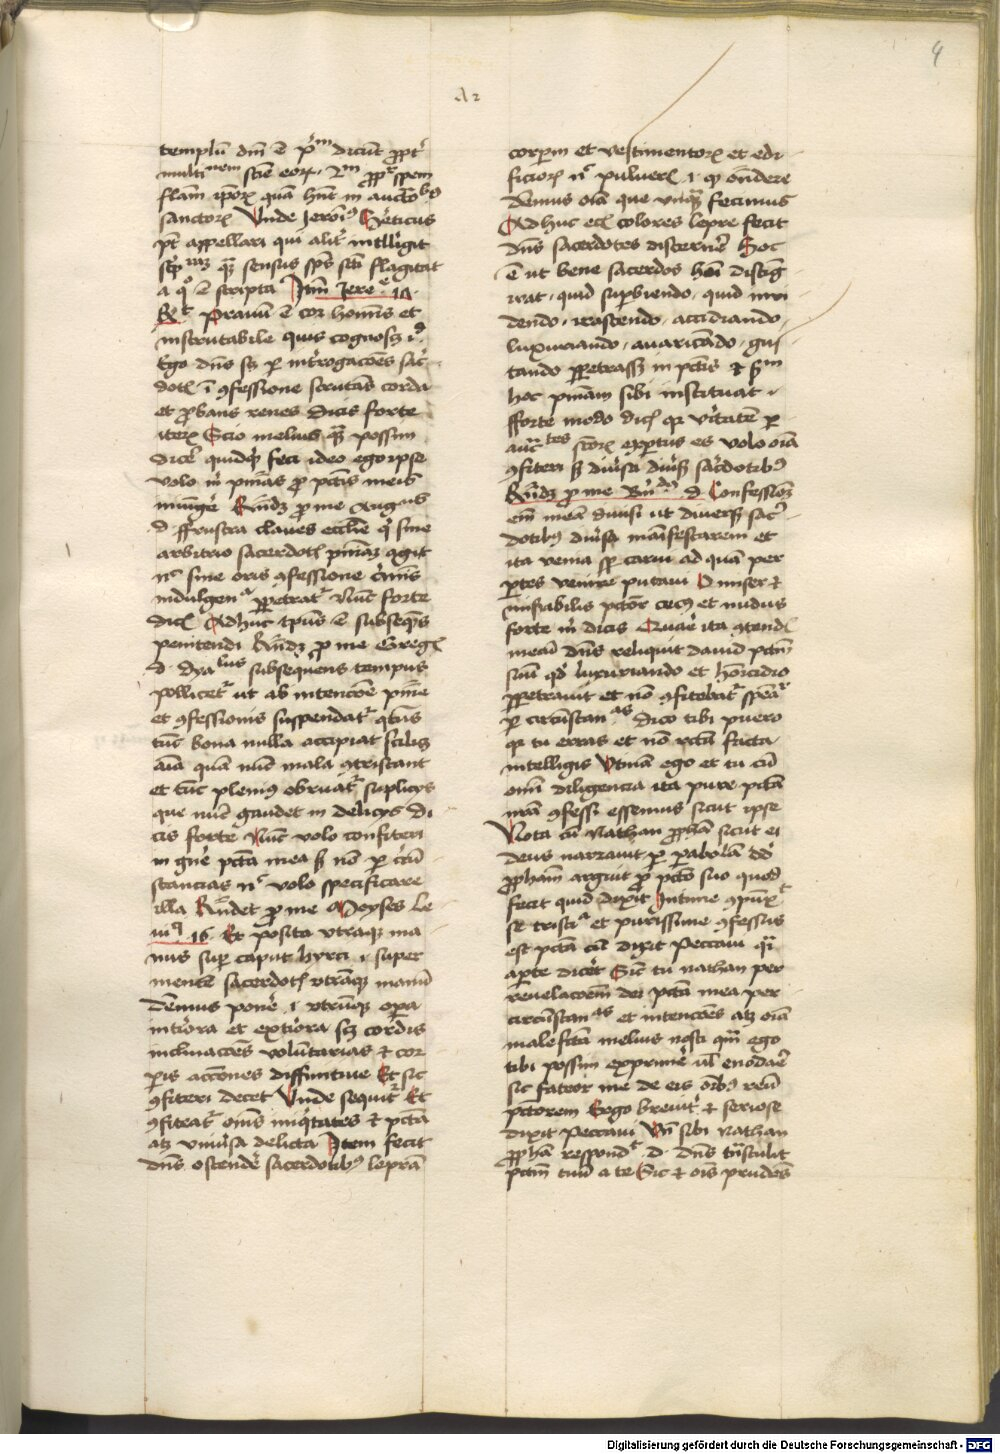 4
A2
templū dm̄ ē pͥmͫ dicūt ꝓpt̾
multiⁿᵉᵐ sciē eoꝝ. 2ᵐ ꝓpt̾ spem
flam̄ ipoꝝ quā hn̄t in auctoᵇꝯ
sanctoꝝ Vnde Jeroīꝯ Hereticus
pt̄ appellari qui alit̾ intlligit
scp̾ʳᵃᵐ qꝫ sensus spūs scī flagitat
a qͦ ē scripta Itm̄ Jereᵉ 17
Rͨ Prauū ē cor homīs et
instrutabile quis cognoscꝫ iᵈ
Ego dn̄s sꝫ ꝑ int̾rogacōes sac̾
dotꝭ ī ꝯfessione scrutās corda
et ꝓbans renes Dicis forte
iterꝝ Scio melius qͣꝫ possim
dice̾ quidqͥ feci ideo ego ipse
volo m̄ pnīas ꝓ pctīs meis
iniūge̾ Rn̄dꝫ ꝓ me Augus
d. ffrustra claues ecclīe qͥ sine
arbitrio sacerdotꝭ pnīaꝫ agit
nͨ sine oris ꝯfessione c̾imīs
indulgenᵃ ꝑpetrat̾ Nūc forte
dicꝭ Adhuc tp̄us ē subseqn̄s
penitendi Rn̄dꝫ ꝓ me Gregꝭ
d. dyaˡᵘˢ subsequens tempus
pollicet̾ ut ab intencōe pnīe
et ꝯfessionis suspendat̾ qtn̄s
tūc bona nulla accipiat scilꝫ
aīa quā nūc mala ꝯtristant
et tūc plenius obruat̾ suplicijs
que nūc gaudet in delicijs Di
cis forte Nūc volo confiteri
in gn̄e pctā mea sꝫ nō ꝑ circū
stancias nͨ volo specificare
illa Rn̄det ꝓ me Moyses le
uiᵈ 16 Et posita vtraqꝫ ma
nus sup̱ caput hyrci .i. super
mentē sacerdotꝭ vtrāqꝫ manū
dēmus pone̾ .i. vtrūqꝫ oꝑa
inte̾iora et exte̾iora scꝫ cordis
inclinacōes volūtarias et cor
ꝑis accōnes diffuntiue Et sic
ꝯfiteri decet Vnde sequit̾ Et
ꝯfiteat̾ oīnīs iniq̾tates et pctā
atqꝫ vniu̾sa delicta Item fecit
dn̄s ostende̾ sacerdotibꝯ leprā
corpoꝝ et vestimentoꝝ et edi
ficioꝝ nͨ pulueꝝ .i. qꝫ ōndere
dēmus oīa que vnqͣꝫ fecimus
Adhuc ecꝭ colores lepre fecit
dn̄s sacerdotes discerne̾ Hoc
ē ut bene sacerdos hōi disting
wat. quid supbiendo. quid inui
dendo. irascendo. accidiando.
luxuriando. auaricādo. gus
tando ꝑpetrassꝫ in pctīs et sm̄
hoc pnīam sibi instituat.
fforte modo dicꝭ qꝛ v̾itatē ꝑ
aucᵗᵉˢ sctoꝝ expertus es volo oīa
ꝯfiteri sꝫ diu̾sa diu̾sꝭ sac̾dotibꝯ
Rn̄dꝫ ꝓ me Bn̄ᵈꝯ d. Confessionē
em̄ meā diuisi ut diuersꝭ sac̾
dotibꝯ diu̾sa māifestarem et
ita venia spe carui ad quā per
ꝑtes venire putaui O miser et
mis̾abilis pctor cecꝯ et nudus
forte m̄ dicis Quare ita ꝯtendꝭ
mecū dn̄s reliquit dauid pctm̄
suū qd̾ luxuriando et homicidio
ꝑpetrauit et nō ꝯfitebat̾ spēa̾
ꝑ circūstanᵃˢ dico tibi puero
qꝛ tu erras et nō rctā facta
intelligis Vtinā ego et tu cū
omī diligencia ita pure pctā
nrā ꝯfessi essemus sicut ipse
Nota cū Nathan ꝓphā sicut ei
deus narrauit ꝑ ꝑabolā dd̾
ꝓphām arguit ꝓ pctō suo quod
fecit quid dixit Intime ꝯpūxᵗ
se tristiᵃ et purissime ꝯfessus
est pctā cū dixit Peccaui qͣi
aꝑte dice̾t Sic tu nathan per
reuelacōem̄ dei pctā mea per
circūstanᵃˢ et intencōes atqꝫ oīa
malefctā melius nosti qm̄ ego
tibi possim exprime̾ ul̄ enodar̄e
sic fateor me de eis oībꝯ reū
pctorem Ergo breuit̾ et seriose
dixit Peccaui Vn̄ sibi Nathan
ꝓphā respondᵗ d. dn̄s tn̄stulit
pctm̄ tuū a te Sic et oīs prudēs
Digitalisierung gefördert durch die Deutsche Forschungsgemeinschaft - DFG